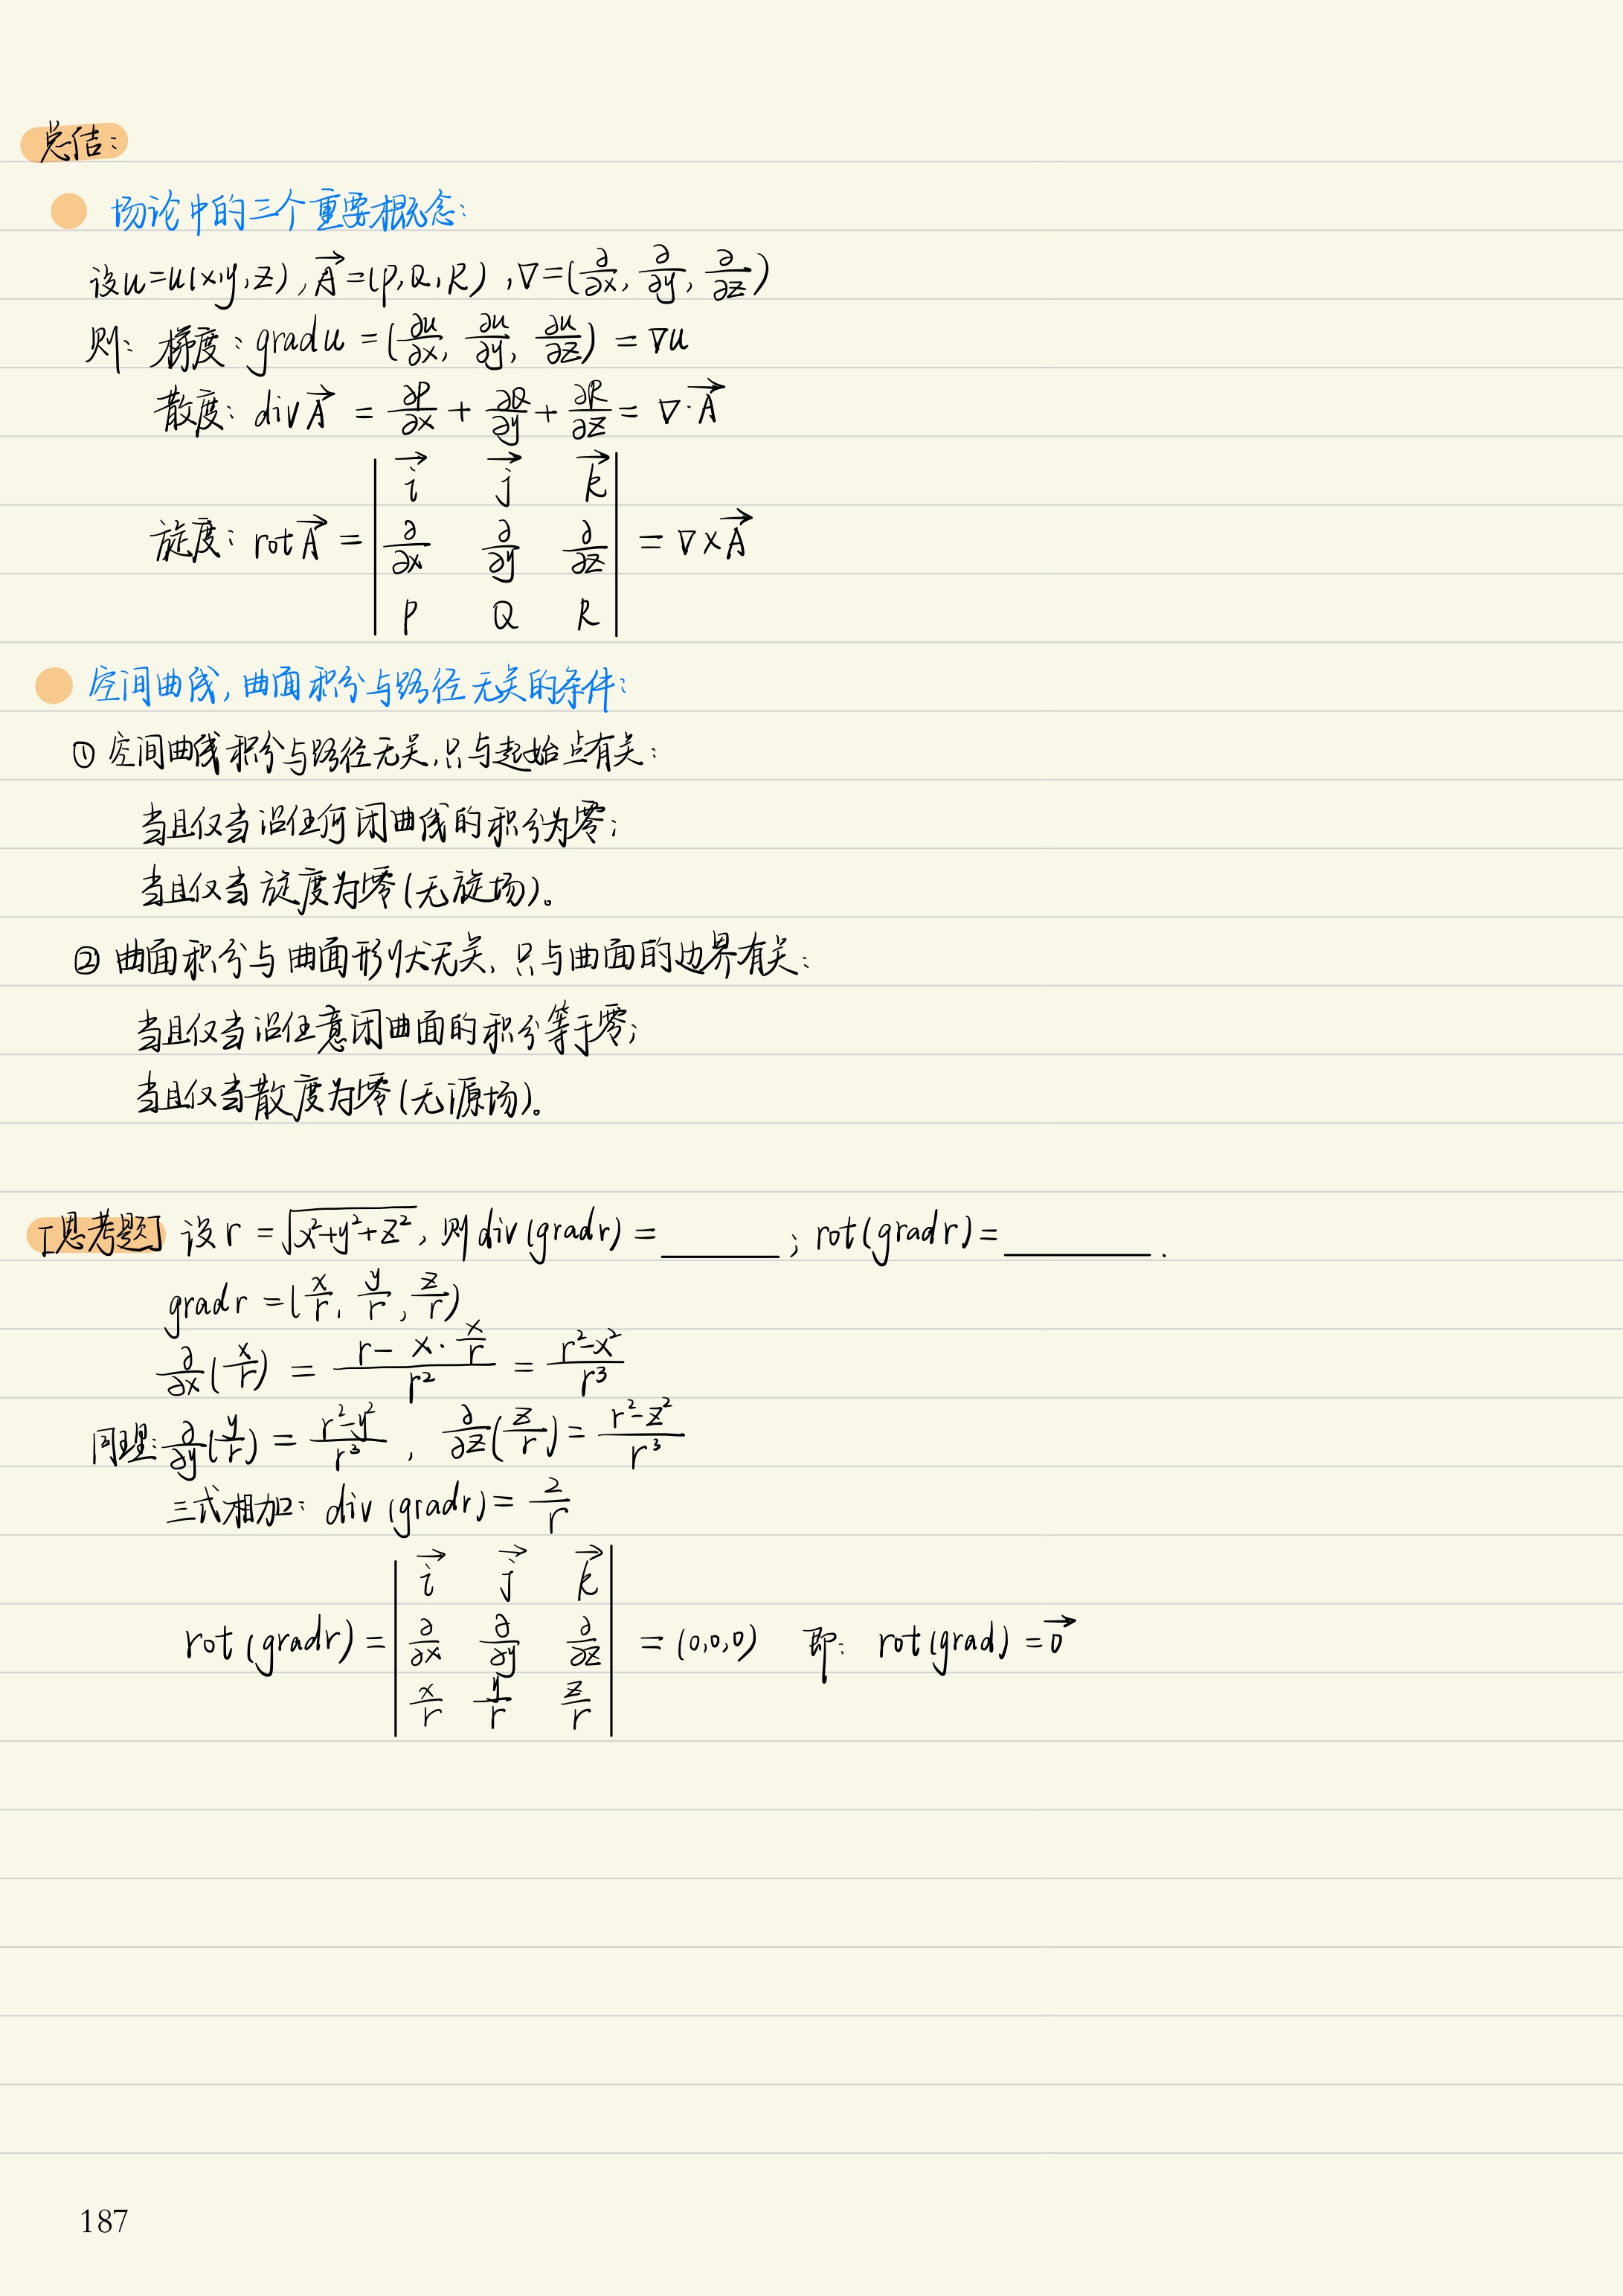 总结：
场论中的三个重要概念：
设u=u(x,y,z), A⃗=(P,Q,R), ∇=(∂/∂x, ∂/∂y, ∂/∂z)
则：梯度：grad u = (∂u/∂x, ∂u/∂y, ∂u/∂z) = ∇u
散度：div A⃗ = ∂P/∂x + ∂Q/∂y + ∂R/∂z = ∇·A⃗
旋度：rot A⃗ = | i⃗ j⃗ k⃗ |
| ∂/∂x ∂/∂y ∂/∂z | = ∇×A⃗
| P Q R |
空间曲线，曲面积分与路径无关的条件：
① 空间曲线积分与路径无关，只与起始点有关：
当且仅当沿任何闭曲线的积分为零；
当且仅当旋度为零(无旋场)。
② 曲面积分与曲面形状无关，只与曲面的边界有关：
当且仅当沿任意闭曲面的积分等于零；
当且仅当散度为零(无源场)。
[思考题] 设 r = √(x²+y²+z²), 则 div(grad r) = ______ ; rot(grad r) = ______ .
grad r = (x/r, y/r, z/r)
∂/∂x(x/r) = (r - x·x/r)/r² = (r²-x²)/r³
同理：∂/∂y(y/r) = (r²-y²)/r³, ∂/∂z(z/r) = (r²-z²)/r³
三式相加：div(grad r) = 2/r
rot(grad r) = | i⃗ j⃗ k⃗ |
| ∂/∂x ∂/∂y ∂/∂z | = (0,0,0) 即：rot(grad) = 0⃗
| x/r y/r z/r |
187